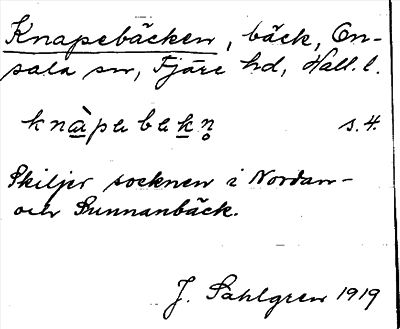 Knapebäcken, bäck, On-
sala sn, Fjäre hd, Hall. l.
knàpebekn̥ s. 4.
Skiljer socknen i Nordan-
och Sunnanbäck.
J. Sahlgren 1919